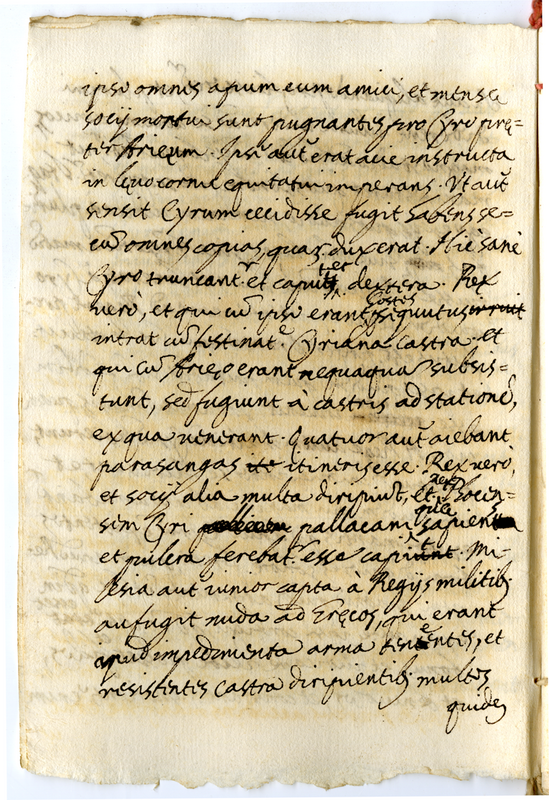 ipso omnes apium eum amici, et mensæ
socij mortui sunt pugnantes pro Cyro pręter=
ter Arieum. Ipse aūt erat acie instructa
in levo cornu equitatui imperans. Vt aūt
sensit Cyrum cecidisse fugit habens se=
cū omnes copias, quas duxerat. Hic sane
Cyro truncant.r et caput, et dextera. Rex
vero, et qui cū ipso erant hostes sequutus
intrat cū festinat.e Cyriana castra. et
qui cū Arięo erant nequaquā subsis=
tunt, sed fugiunt à castris ad stationē,
ex qua venerant. Quatuor aūt aiebant
parasangas itineris esse. Rex vero,
et socij alia multa diripiūt, et Phocen=
sem Cyri pallacam, quę sapiens
et pulcra ferebat.r esse capiūt. Mi=
lesia aūt iunior capta à Regijs militib.
aufugit nuda ad Gręcos, qui erant
apud impedimenta arma tenentes, et
resistentes castra diripientib. multos
quidē